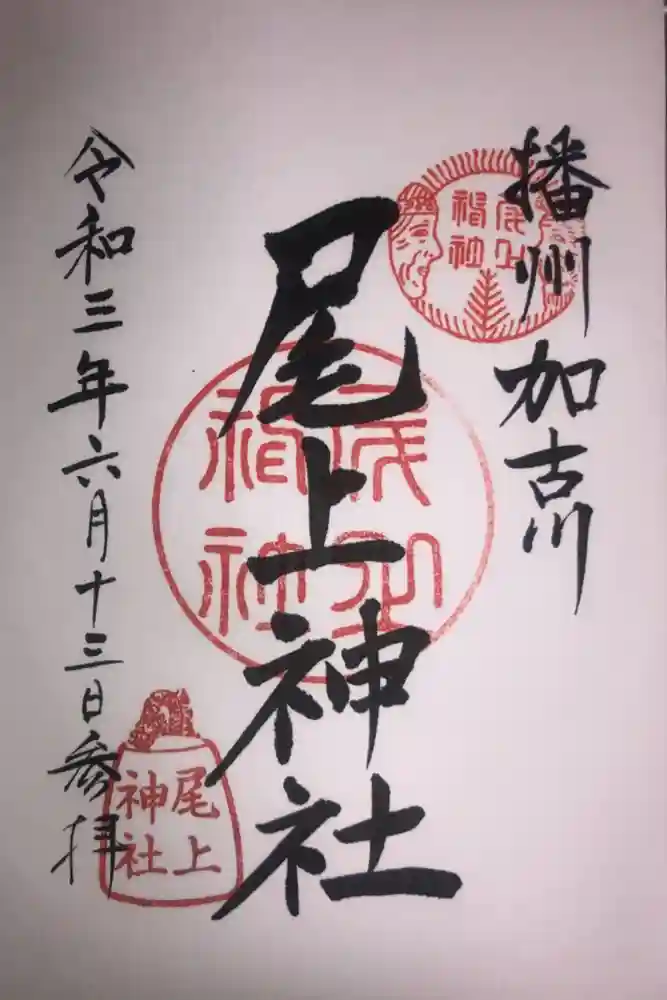 播州加古川
尾上
神社
尾上神社
尾上
神社
令和三年六月十三日参拝